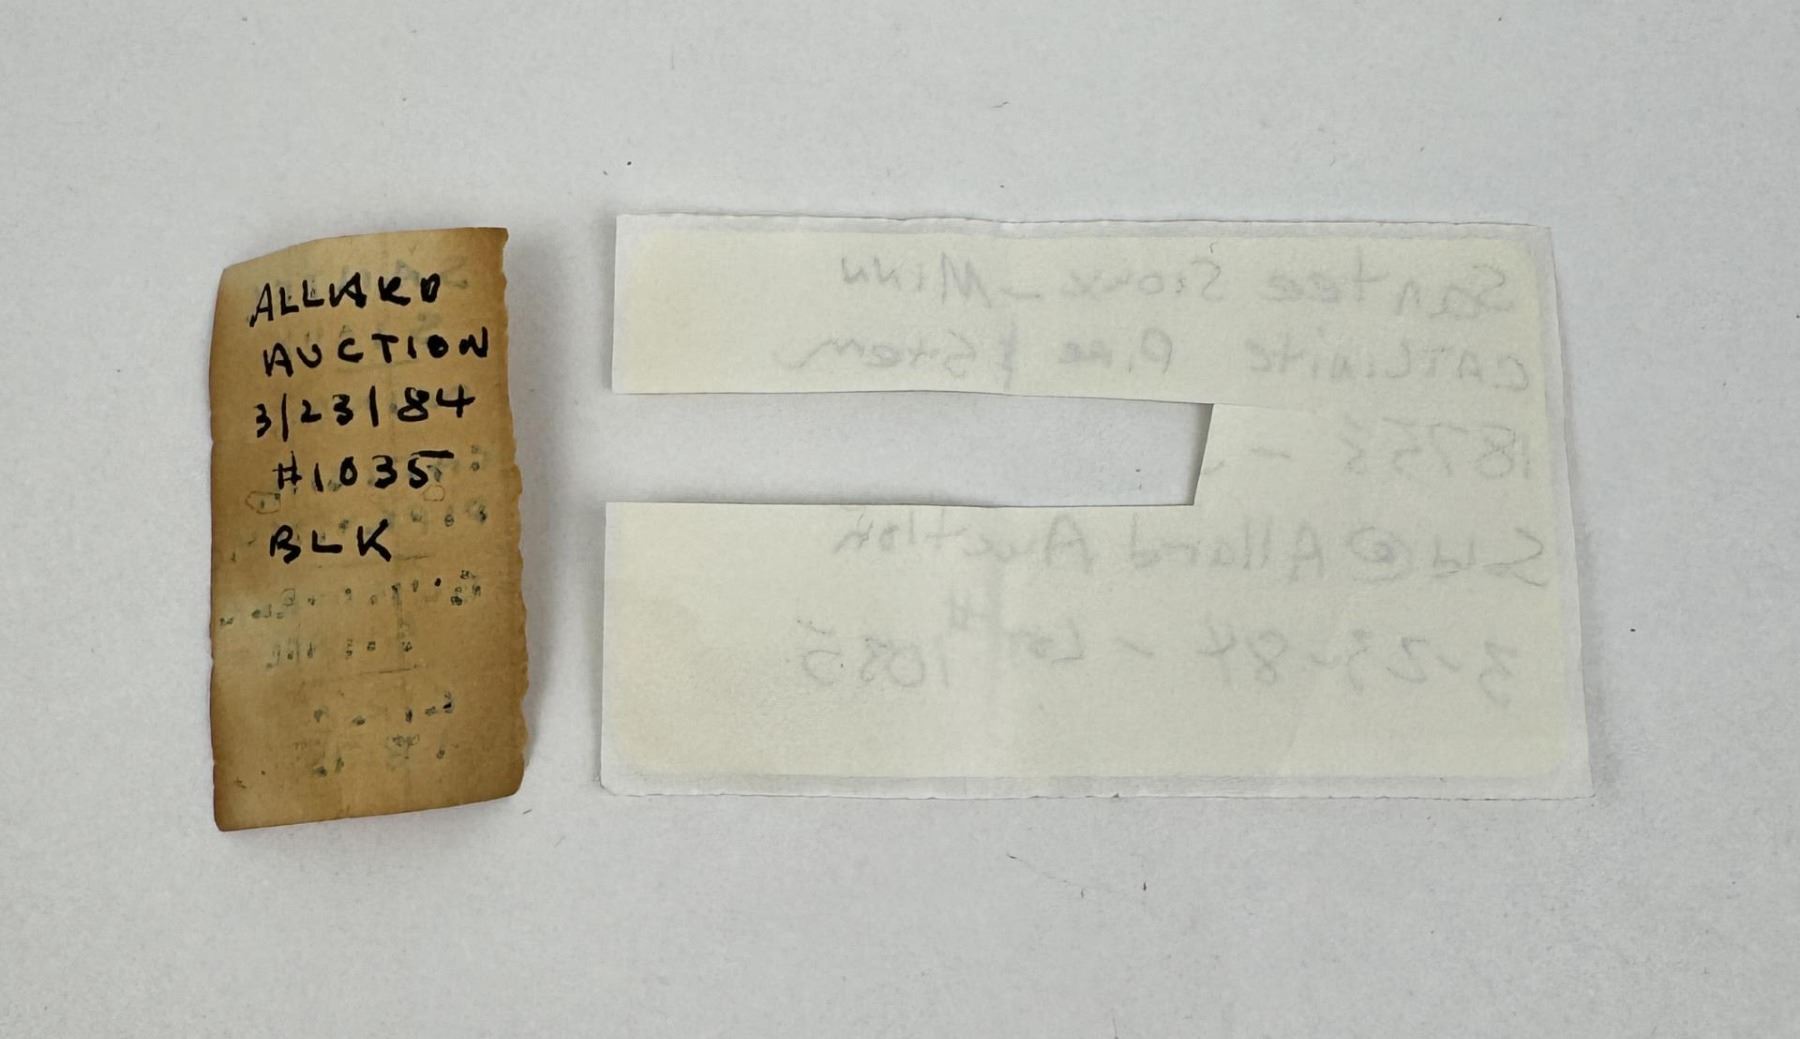 ALLARD
AUCTION
3/23/84
#1035
BLK
Santee Sioux - Minn
CATLINITE Pipe & Stem
1875's -
Sold @ Allard Auction
3-23-84 - Lot # 1035